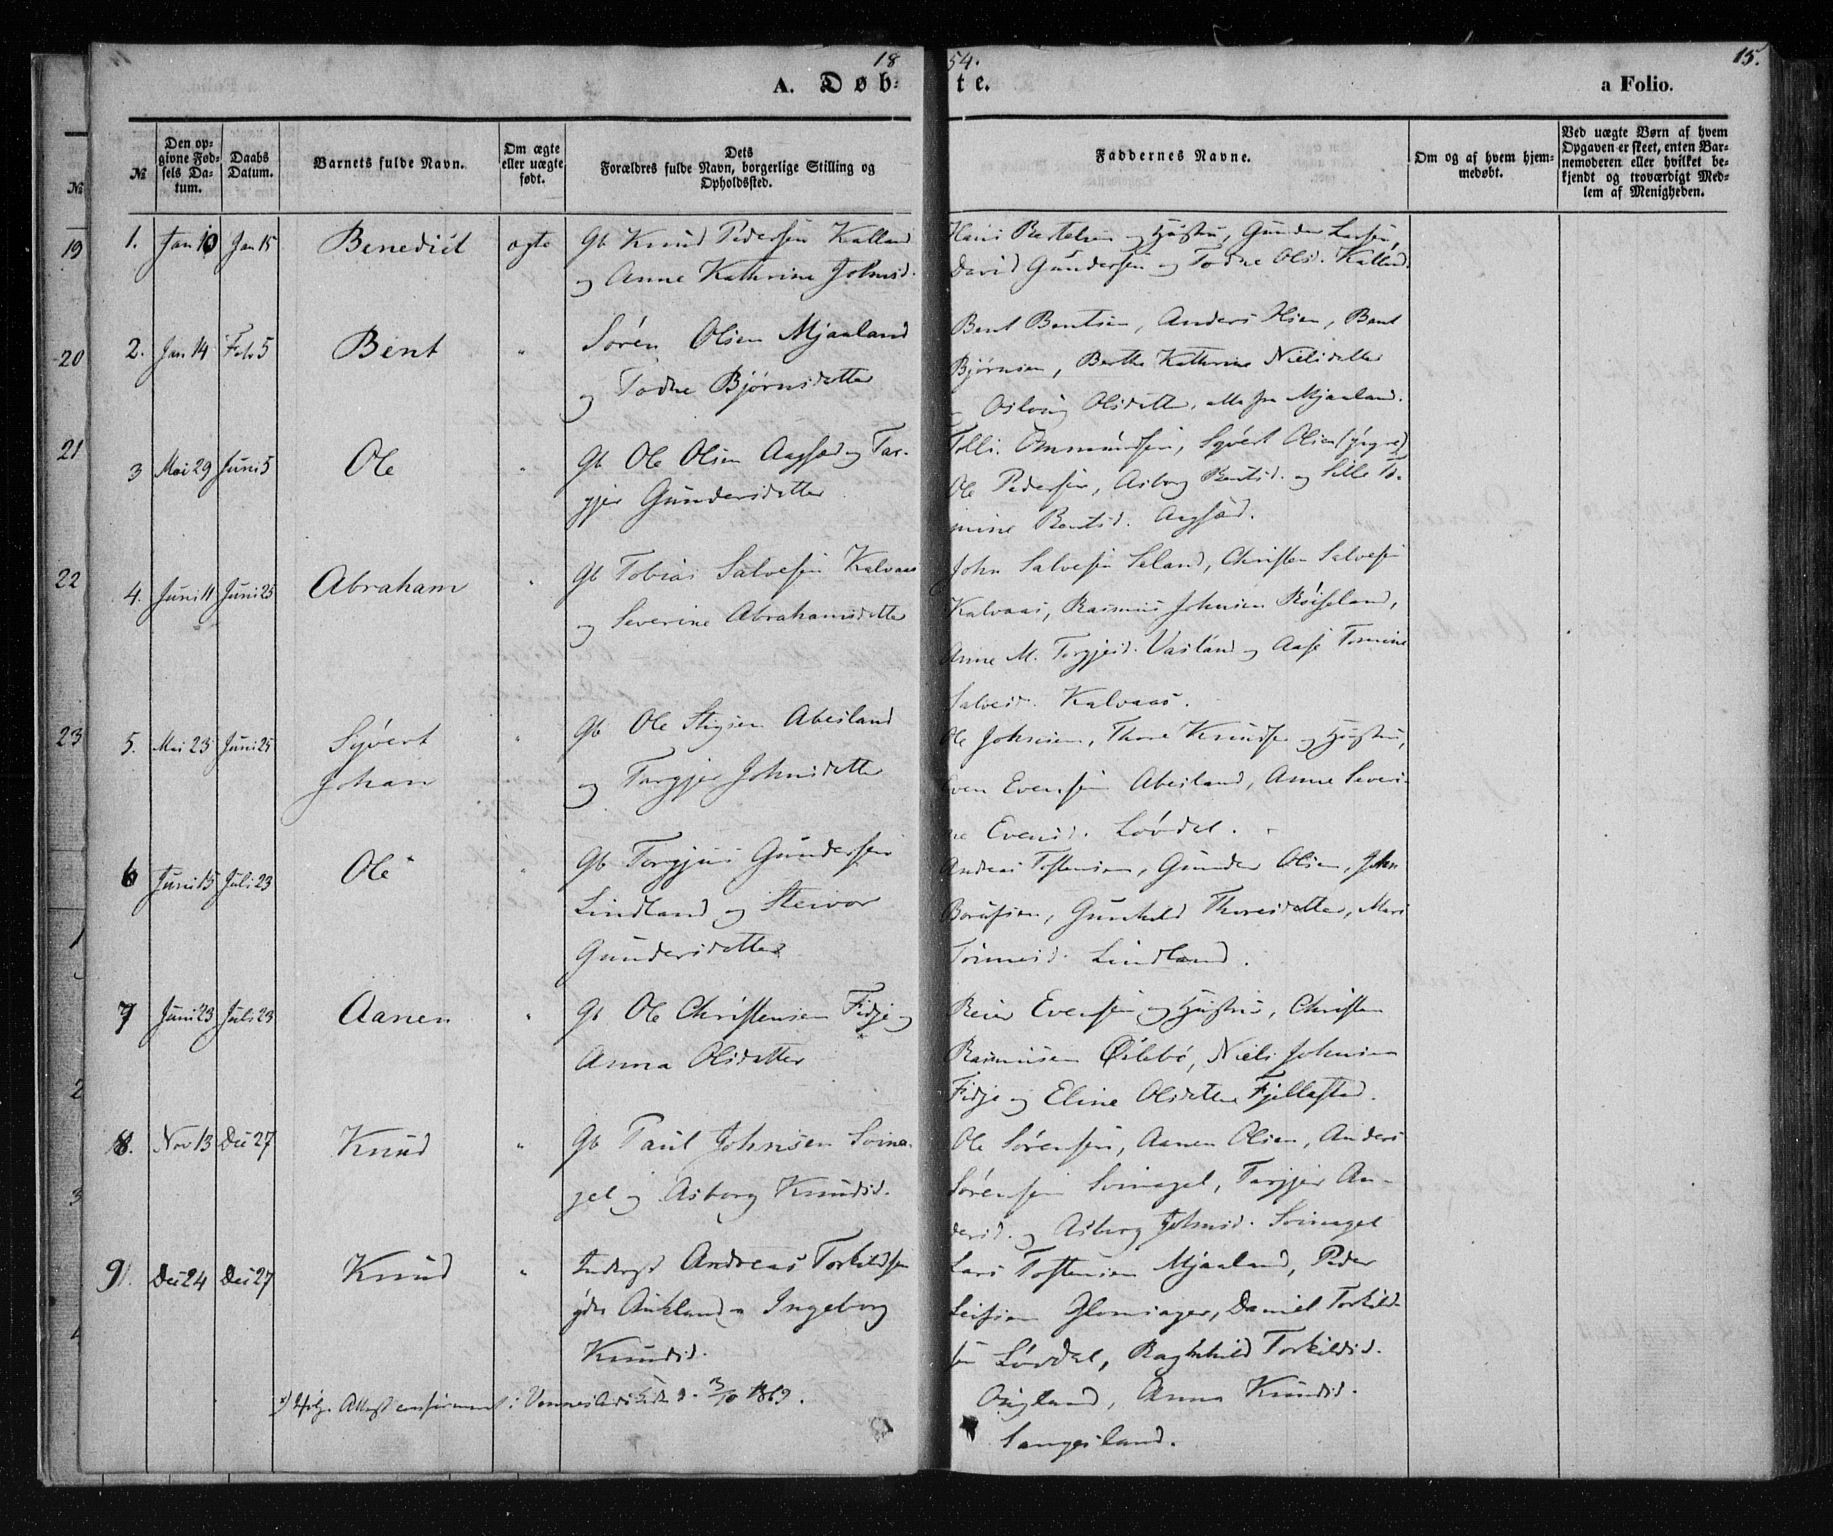 1854.
15.
A. Døbte.
a Folio.
№
Den opgivne Fødsels Datum.
Daabs Datum.
Barnets fulde Navn.
Om ægte eller uægte født.
Dets Forældres fulde Navn, borgerlige Stilling og Opholdssted.
Faddernes Navne.
Om og af hvem hjemmedøbt.
Ved uægte Børn af hvem Opgaven er skeet, enten Barnemoderen eller hvilket bekjendt og troværdigt Medlem af Menigheden.
1. Jan 10 Jan 15 Benedict ægte Gb Knud Pedersen Kalland
og Anne Kathrine Johnsd.
Hans Bertelsen og Hustru, Gunder Larsen,
David Gundersen og Todne Olsd. Kalland.
2. Jan 14 Feb 5 Bent " Søren Olsen Mjaaland
og Todne Bjørnsdatter
Bent Bentsen, Anders Olsen, Bent
Bjørnsen, Berthe Kathrine Nielsdatter
Olsdatter, alle fra Mjaaland.
3 Mai 29 Juni 5 Ole " Gb Ole Olsen Aagsæd og Tar-
gjer Gundersdatter
Ommundsen, Syvert Olsen (yngre)
Ole Pedersen, Asborg Bentsd. og Sille To-
mine Bentsd. Aagsæd.
4. Juni 11 Juni 25 Abraham " Gb Tobias Salvesen Kalvaas
og Severine Abrahamsdatter
John Salvesen Seland, Christen Salvesen
Kalvaas, Rasmus Johnsen Røiseland,
Anne M. Torgjeisd. Vasland og Aase Tomine
Salvesd. Kalvaas.
5. Mai 23 Juni 25 Syvert
Johan " Gb Ole Stigsen Abesland
og Targjer Johnsdatter
Ole Johnsen, Thore Knudsen og Hustru,
Even Evensen Abesland, Anne Severi-
ne Evensd. Løvdal.
6 Juni 15 Juli 23 Ole " Gb Torgjuus Gundersen
Lindland og Steivor
Gundersdatter
Andreas Tostensen, Gunder Olsen, John
Gunhild Thoresdatter, Mari
Tønnesd. Lindland.
7 Juni 23 Juli 23 Aanen " Gb Ole Christensen Fidje og
Anna Olsdatter
Reier Evensen og Hustru, Christen
Rasmusen Øilebø, Niels Johnsen
Fidje og Eline Olsdatter Fjellestad.
8. Nov 13 Dec 27 Knud " Gb Paul Johnsen Svina-
gel og Asborg Knudsd.
Ole Sørensen, Aanen Olsen, Anders
Sørensen Svinagel, Targjer An-
dersd. og Asborg Johnsd. Svinagel
9. Dec 24 Dec 27 Knud " Inderst Andreas Torkildsen
Aukland og Ingeborg
Knudsd.
Lars Tostensen Mjaaland, Peder
Leifsen Glomsager, Daniel Torkild-
sen Løvdal, Raghild Torkildsd.
Øigland, Anna Knudsd.
Sangesland.
Attest confirmeret i Vennesland 3/10 1869.
19
20
21
22
23
1
2
3